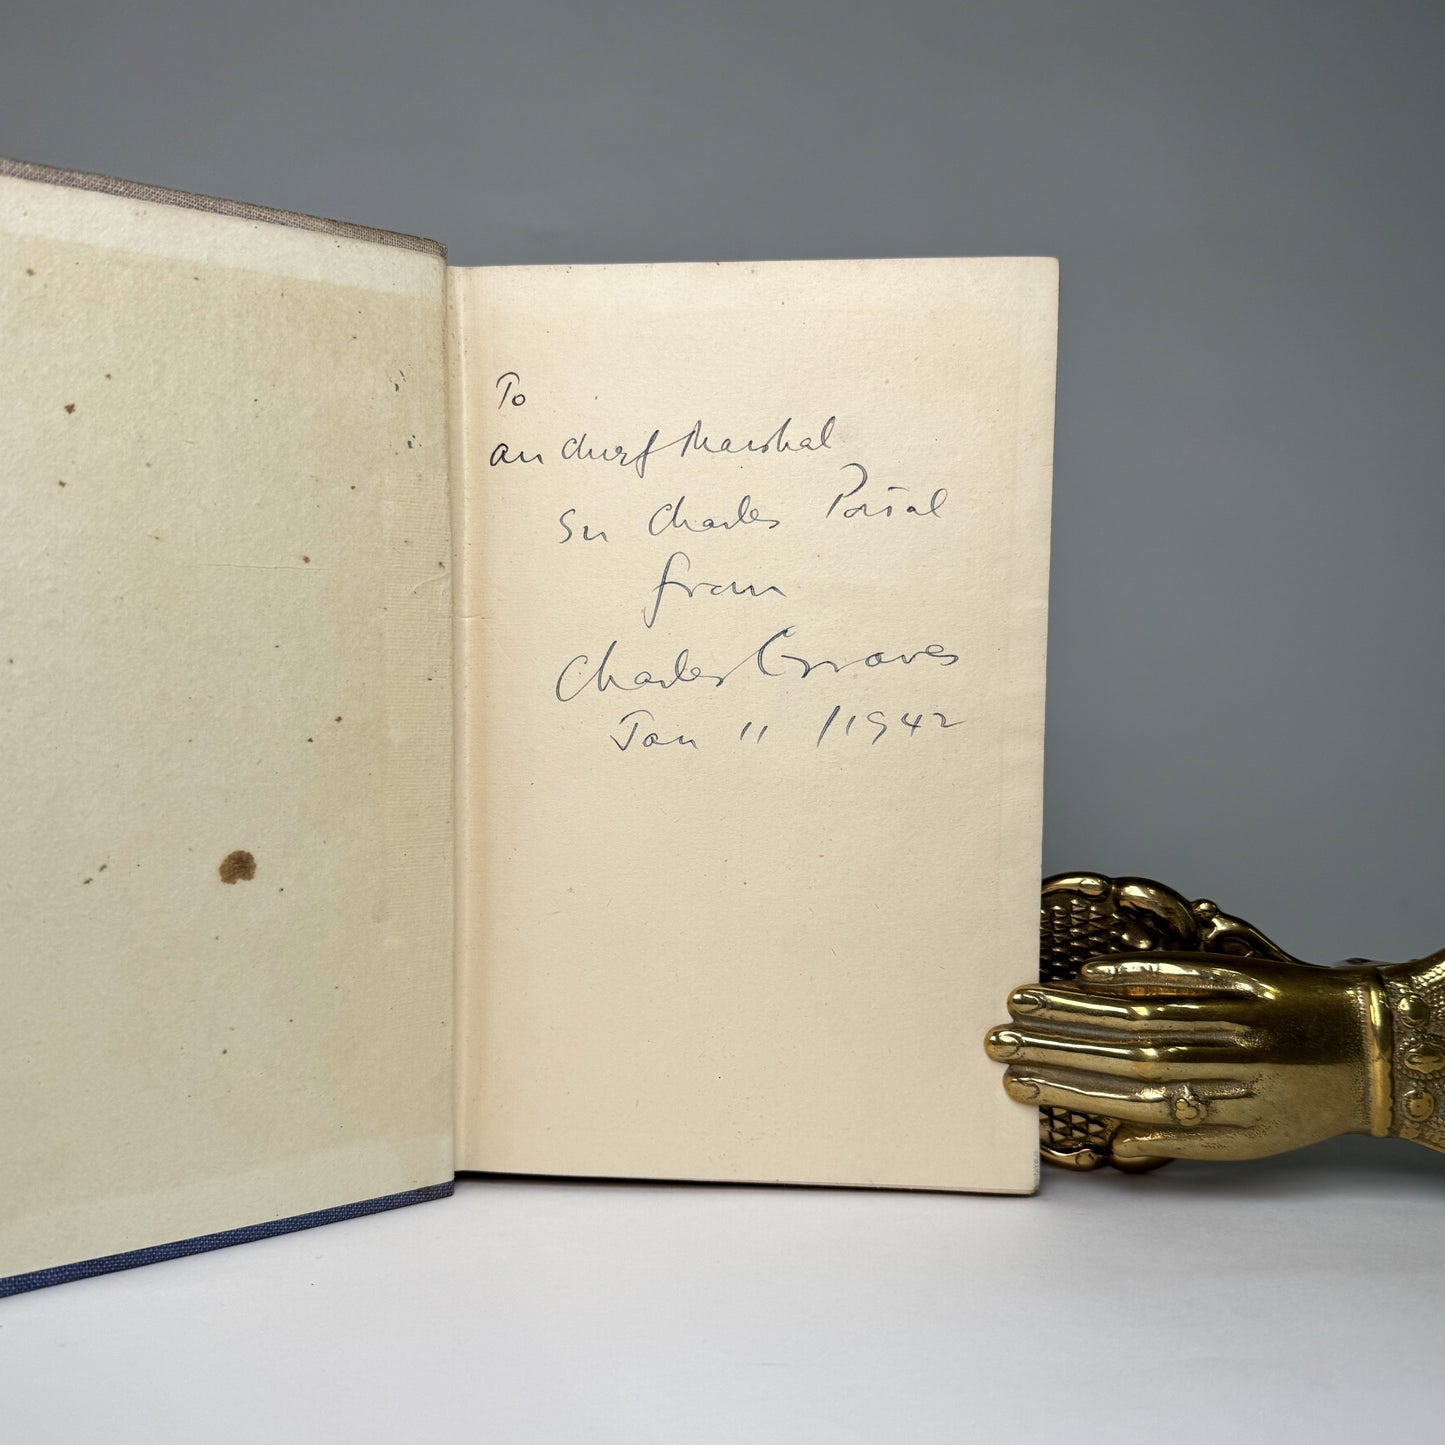 To
Air Chief Marshal
Sir Charles Portal
from
Charles Graves
Jan 11 / 1942